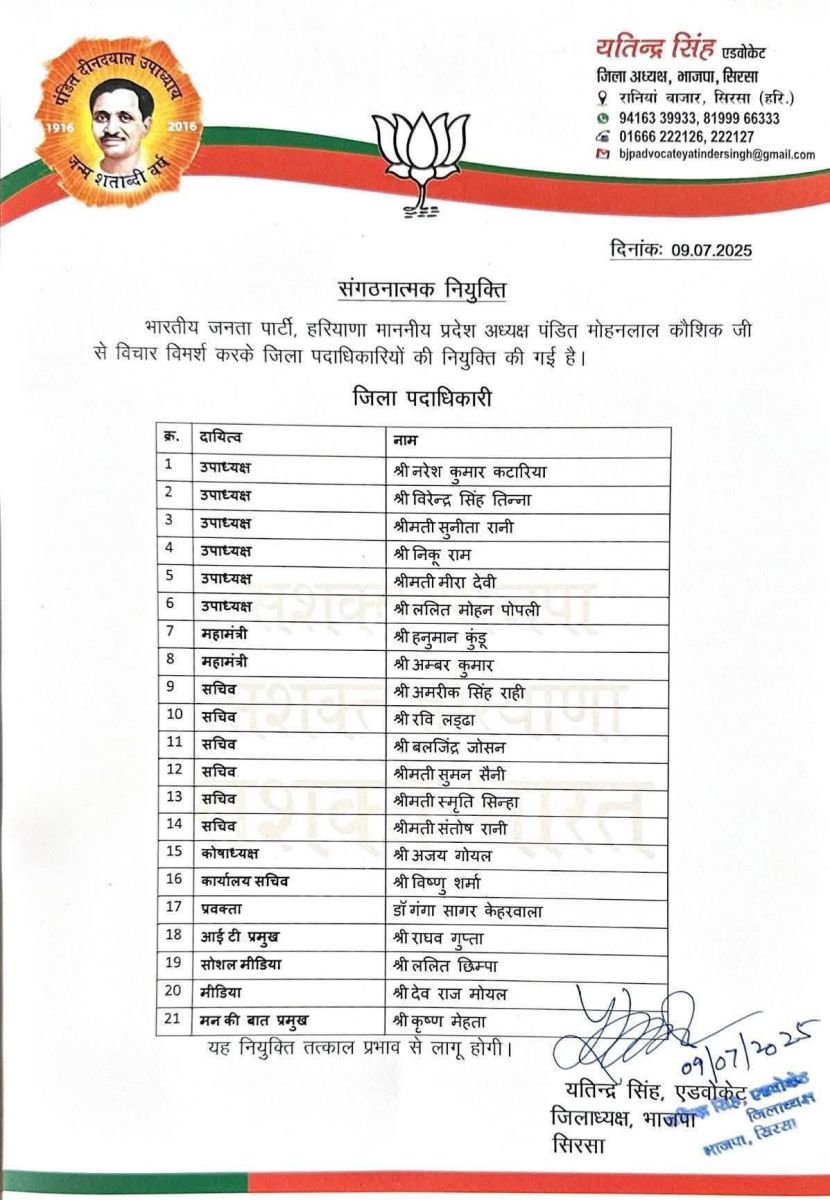 पंडित दीनदयाल उपाध्याय
1916 2016
जन्म शताब्दी वर्ष
यतिन्द्र सिंह एडवोकेट
जिला अध्यक्ष, भाजपा, सिरसा
रानियां बाजार, सिरसा (हरि.)
94163 39933, 81999 66333
01666 222126, 222127
bjpadvocateyatindersingh@gmail.com
दिनांकः 09.07.2025
संगठनात्मक नियुक्ति
भारतीय जनता पार्टी, हरियाणा माननीय प्रदेश अध्यक्ष पंडित मोहनलाल कौशिक जी
से विचार विमर्श करके जिला पदाधिकारियों की नियुक्ति की गई है।
जिला पदाधिकारी
क्र. दायित्व नाम
1 उपाध्यक्ष श्री नरेश कुमार कटारिया
2 उपाध्यक्ष श्री विरेन्द्र सिंह तिन्ना
3 उपाध्यक्ष श्रीमती सुनीता रानी
4 उपाध्यक्ष श्री निकू राम
5 उपाध्यक्ष श्रीमती मीरा देवी
6 उपाध्यक्ष श्री ललित मोहन पोपली
7 महामंत्री श्री हनुमान कुंडू
8 महामंत्री श्री अम्बर कुमार
9 सचिव श्री अमरीक सिंह राही
10 सचिव श्री रवि लड्ढा
11 सचिव श्री बलजिंद्र जोसन
12 सचिव श्रीमती सुमन सैनी
13 सचिव श्रीमती स्मृति सिन्हा
14 सचिव श्रीमती संतोष रानी
15 कोषाध्यक्ष श्री अजय गोयल
16 कार्यालय सचिव श्री विष्णु शर्मा
17 प्रवक्ता डॉ गंगा सागर केहरवाला
18 आई टी प्रमुख श्री राघव गुप्ता
19 सोशल मीडिया श्री ललित छिम्पा
20 मीडिया श्री देव राज मोयल
21 मन की बात प्रमुख श्री कृष्ण मेहता
यह नियुक्ति तत्काल प्रभाव से लागू होगी।
09/07/2025
यतिन्द्र सिंह, एडवोकेट
जिलाध्यक्ष, भाजपा
सिरसा
यतिन्द्र सिंह, एडवोकेट
जिलाध्यक्ष
भाजपा, सिरसा